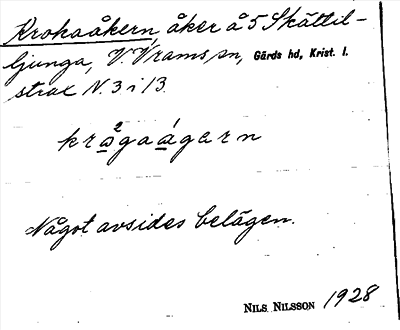 Krokaåkern, åker å 5 Skättil-
ljunga, V. Vrams sn, Gärds hd, Krist. l.
strax N. 3 i 13.
kråg̲aågern
Något avsides belägen.
NILS NILSSON 1928